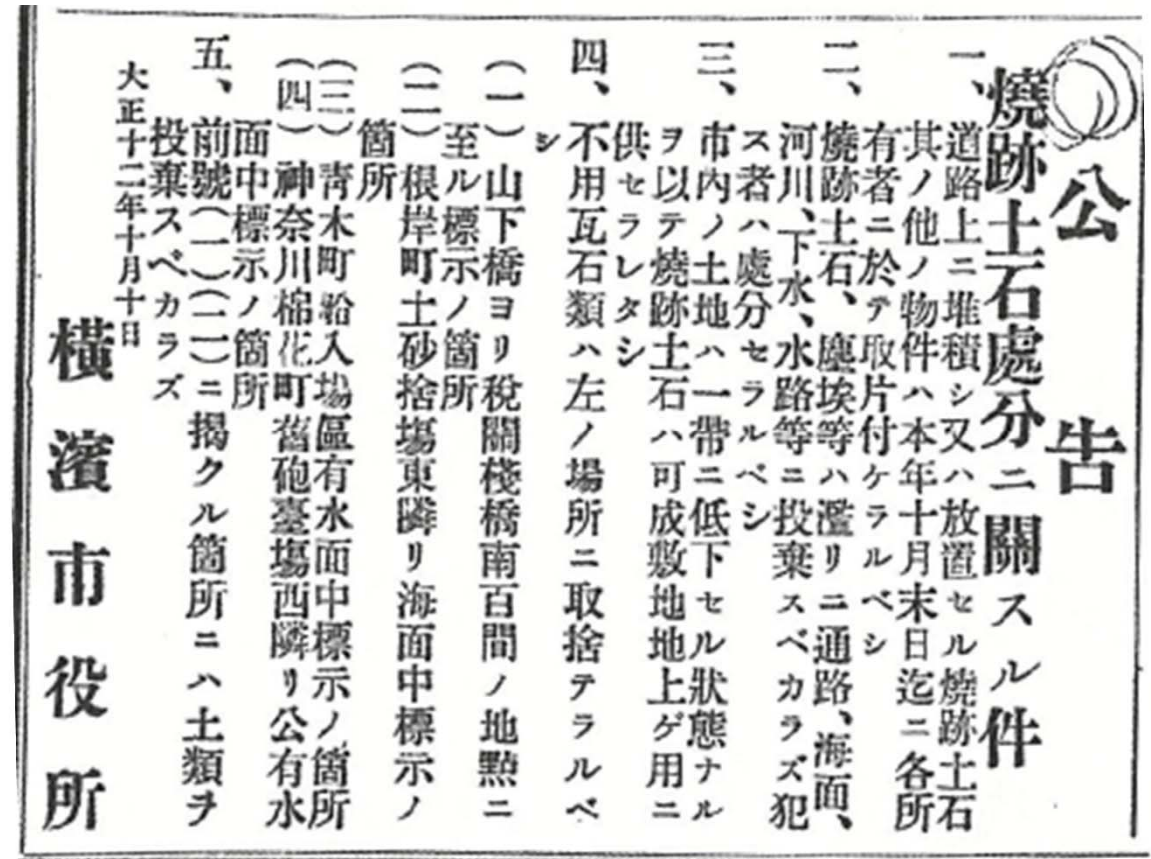 公告
燒跡土石處分ニ關スル件
一、道路上ニ堆積シ又ハ放置セル燒跡土石
其ノ他ノ物件ハ本年十月末日迄ニ各所
有者ニ於テ取片付ケラルベシ
二、燒跡土石、塵埃等ハ濫リニ通路、海面、
河川、下水、水路等ニ投棄スベカラズ犯
ス者ハ處分セラルベシ
三、市內ノ土地ハ一帶ニ低下セル狀態ナル
ヲ以テ燒跡土石ハ可成敷地地上ゲ用ニ
供セラレタシ
四、不用瓦石類ハ左ノ場所ニ取捨テラルベ
シ
(一)山下橋ヨリ稅關棧橋南百間ノ地點ニ
至ル標示ノ箇所
(二)根岸町土砂捨場東隣リ海面中標示ノ
箇所
(三)靑木町船入場區有水面中標示ノ箇所
(四)神奈川棉花町舊砲臺場西隣リ公有水
面中標示ノ箇所
五、前號(一)(二)ニ揭クル箇所ニハ土類ヲ
投棄スベカラズ
大正十二年十月十日
橫濱市役所